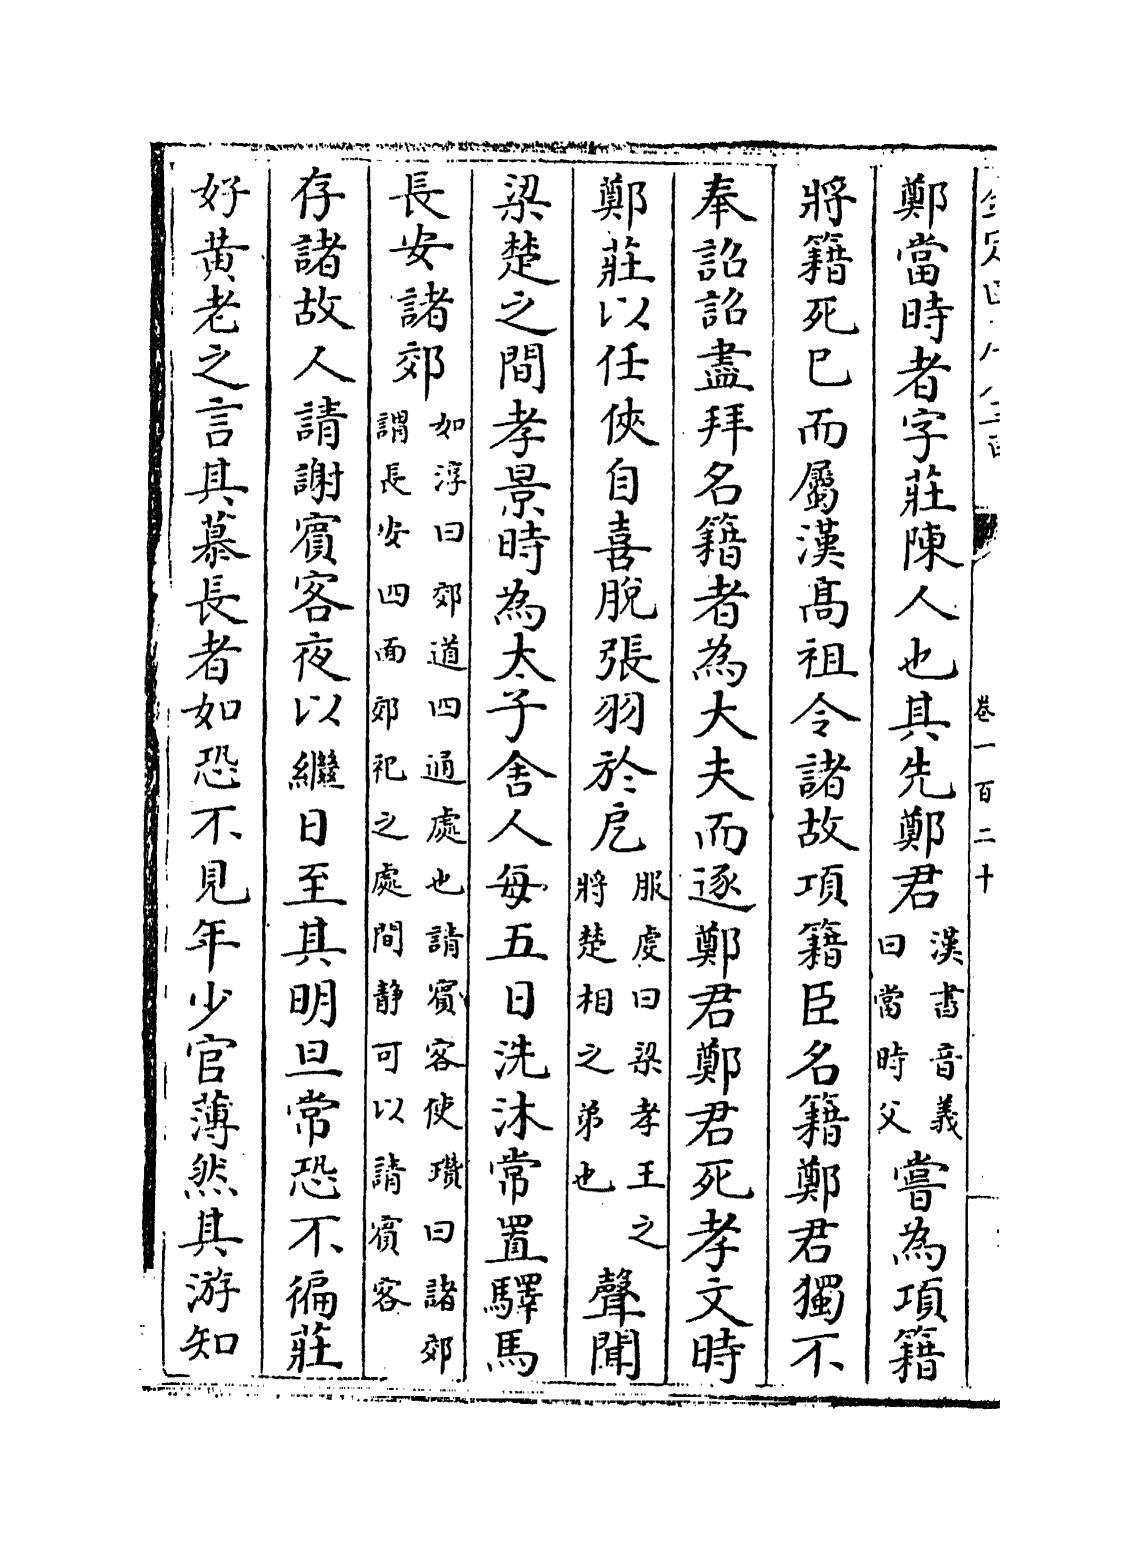 卷一百二十
鄭當時者字莊陳人也其先鄭君漢書音義曰當時父嘗為項籍
將籍死已而屬漢高祖令諸故項籍臣名籍鄭君獨不
奉詔詔盡拜名籍者為大夫而逐鄭君鄭君死孝文時
鄭莊以任俠自喜脫張羽於戹服虔曰梁孝王之將楚相之弟也聲聞
梁楚之間孝景時為太子舍人每五日洗沐常置驛馬
長安諸郊如淳曰郊道四通處也請賓客使瓚曰諸郊謂長安四面郊祀之處間静可以請賓客
存諸故人請謝賓客夜以繼日至其明旦常恐不徧莊
好黄老之言其慕長者如恐不見年少官薄然其游知